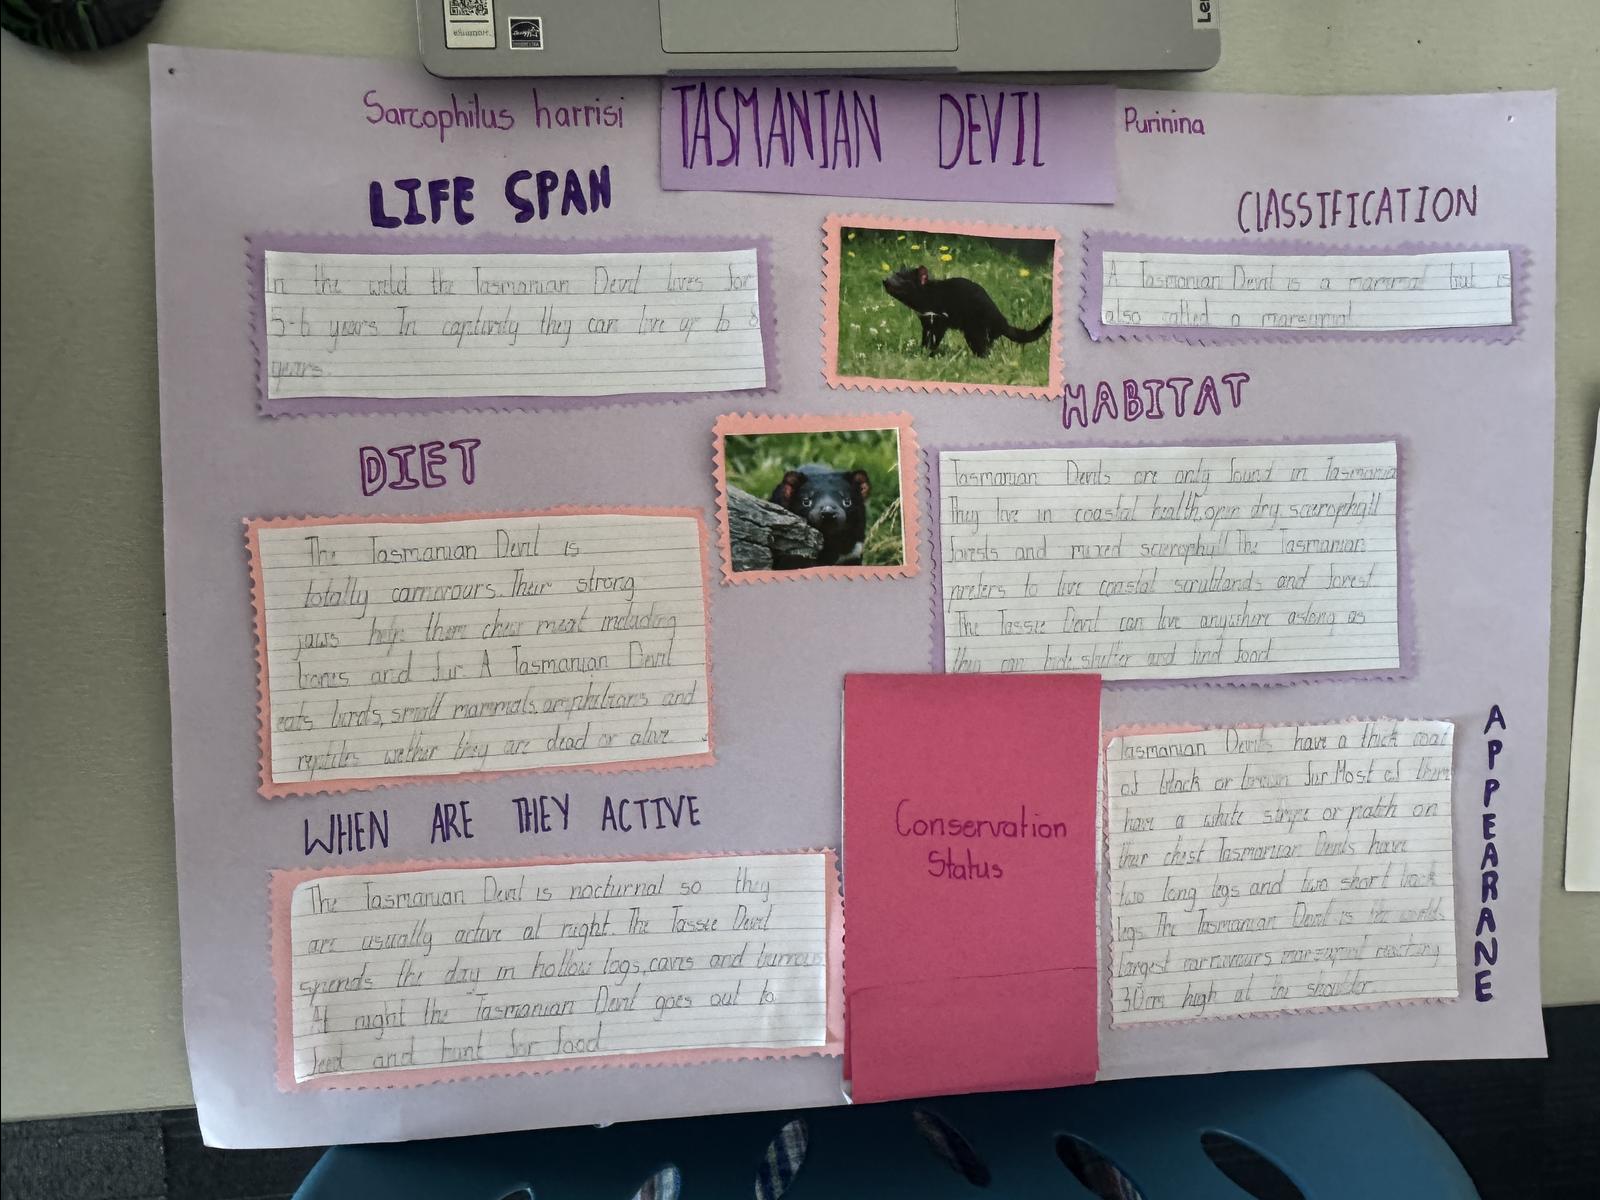 Sarcophilus harrisi
TASMANIAN DEVIL
Purinina
LIFE SPAN
In the wild the Tasmanian Devil lives for
5-6 years In captivity they can live up to 8
years.
CLASSIFICATION
A Tasmanian Devil is a mammal but is
also called a marsupial
DIET
The Tasmanian Devil is
totally carnivours. Their strong
jaws help them chew meat including
bones and fur. A Tasmanian Devil
eats birds, small mammals, amphibians and
reptiles wether they are dead or alive
HABITAT
Tasmanian Devils are only found in Tasmania
They live in coastal health, open dry scerophyll
forests and mixed scerophyll The Tasmanian
prefers to live coastal scrublands and forest.
The Tassie Devil can live anywhere aslong as
they can hide, shelter and find food
WHEN ARE THEY ACTIVE
The Tasmanian Devil is nocturnal so they
are usually active at night. The Tassie Devil
spends the day in hollow logs, cavis and burrows
At night the Tasmanian Devil goes out to
feed and hunt for food
Conservation
Status
APPEARANE
Tasmanian Devils have a thick coat
of black or brown fur. Most of them
have a white stripe or patch on
their chest Tasmanian Devils have
two long legs and two short back
legs. The Tasmanian Devil is the worlds
largest carnivours marsupial reaching
30cm high at the shoulder.